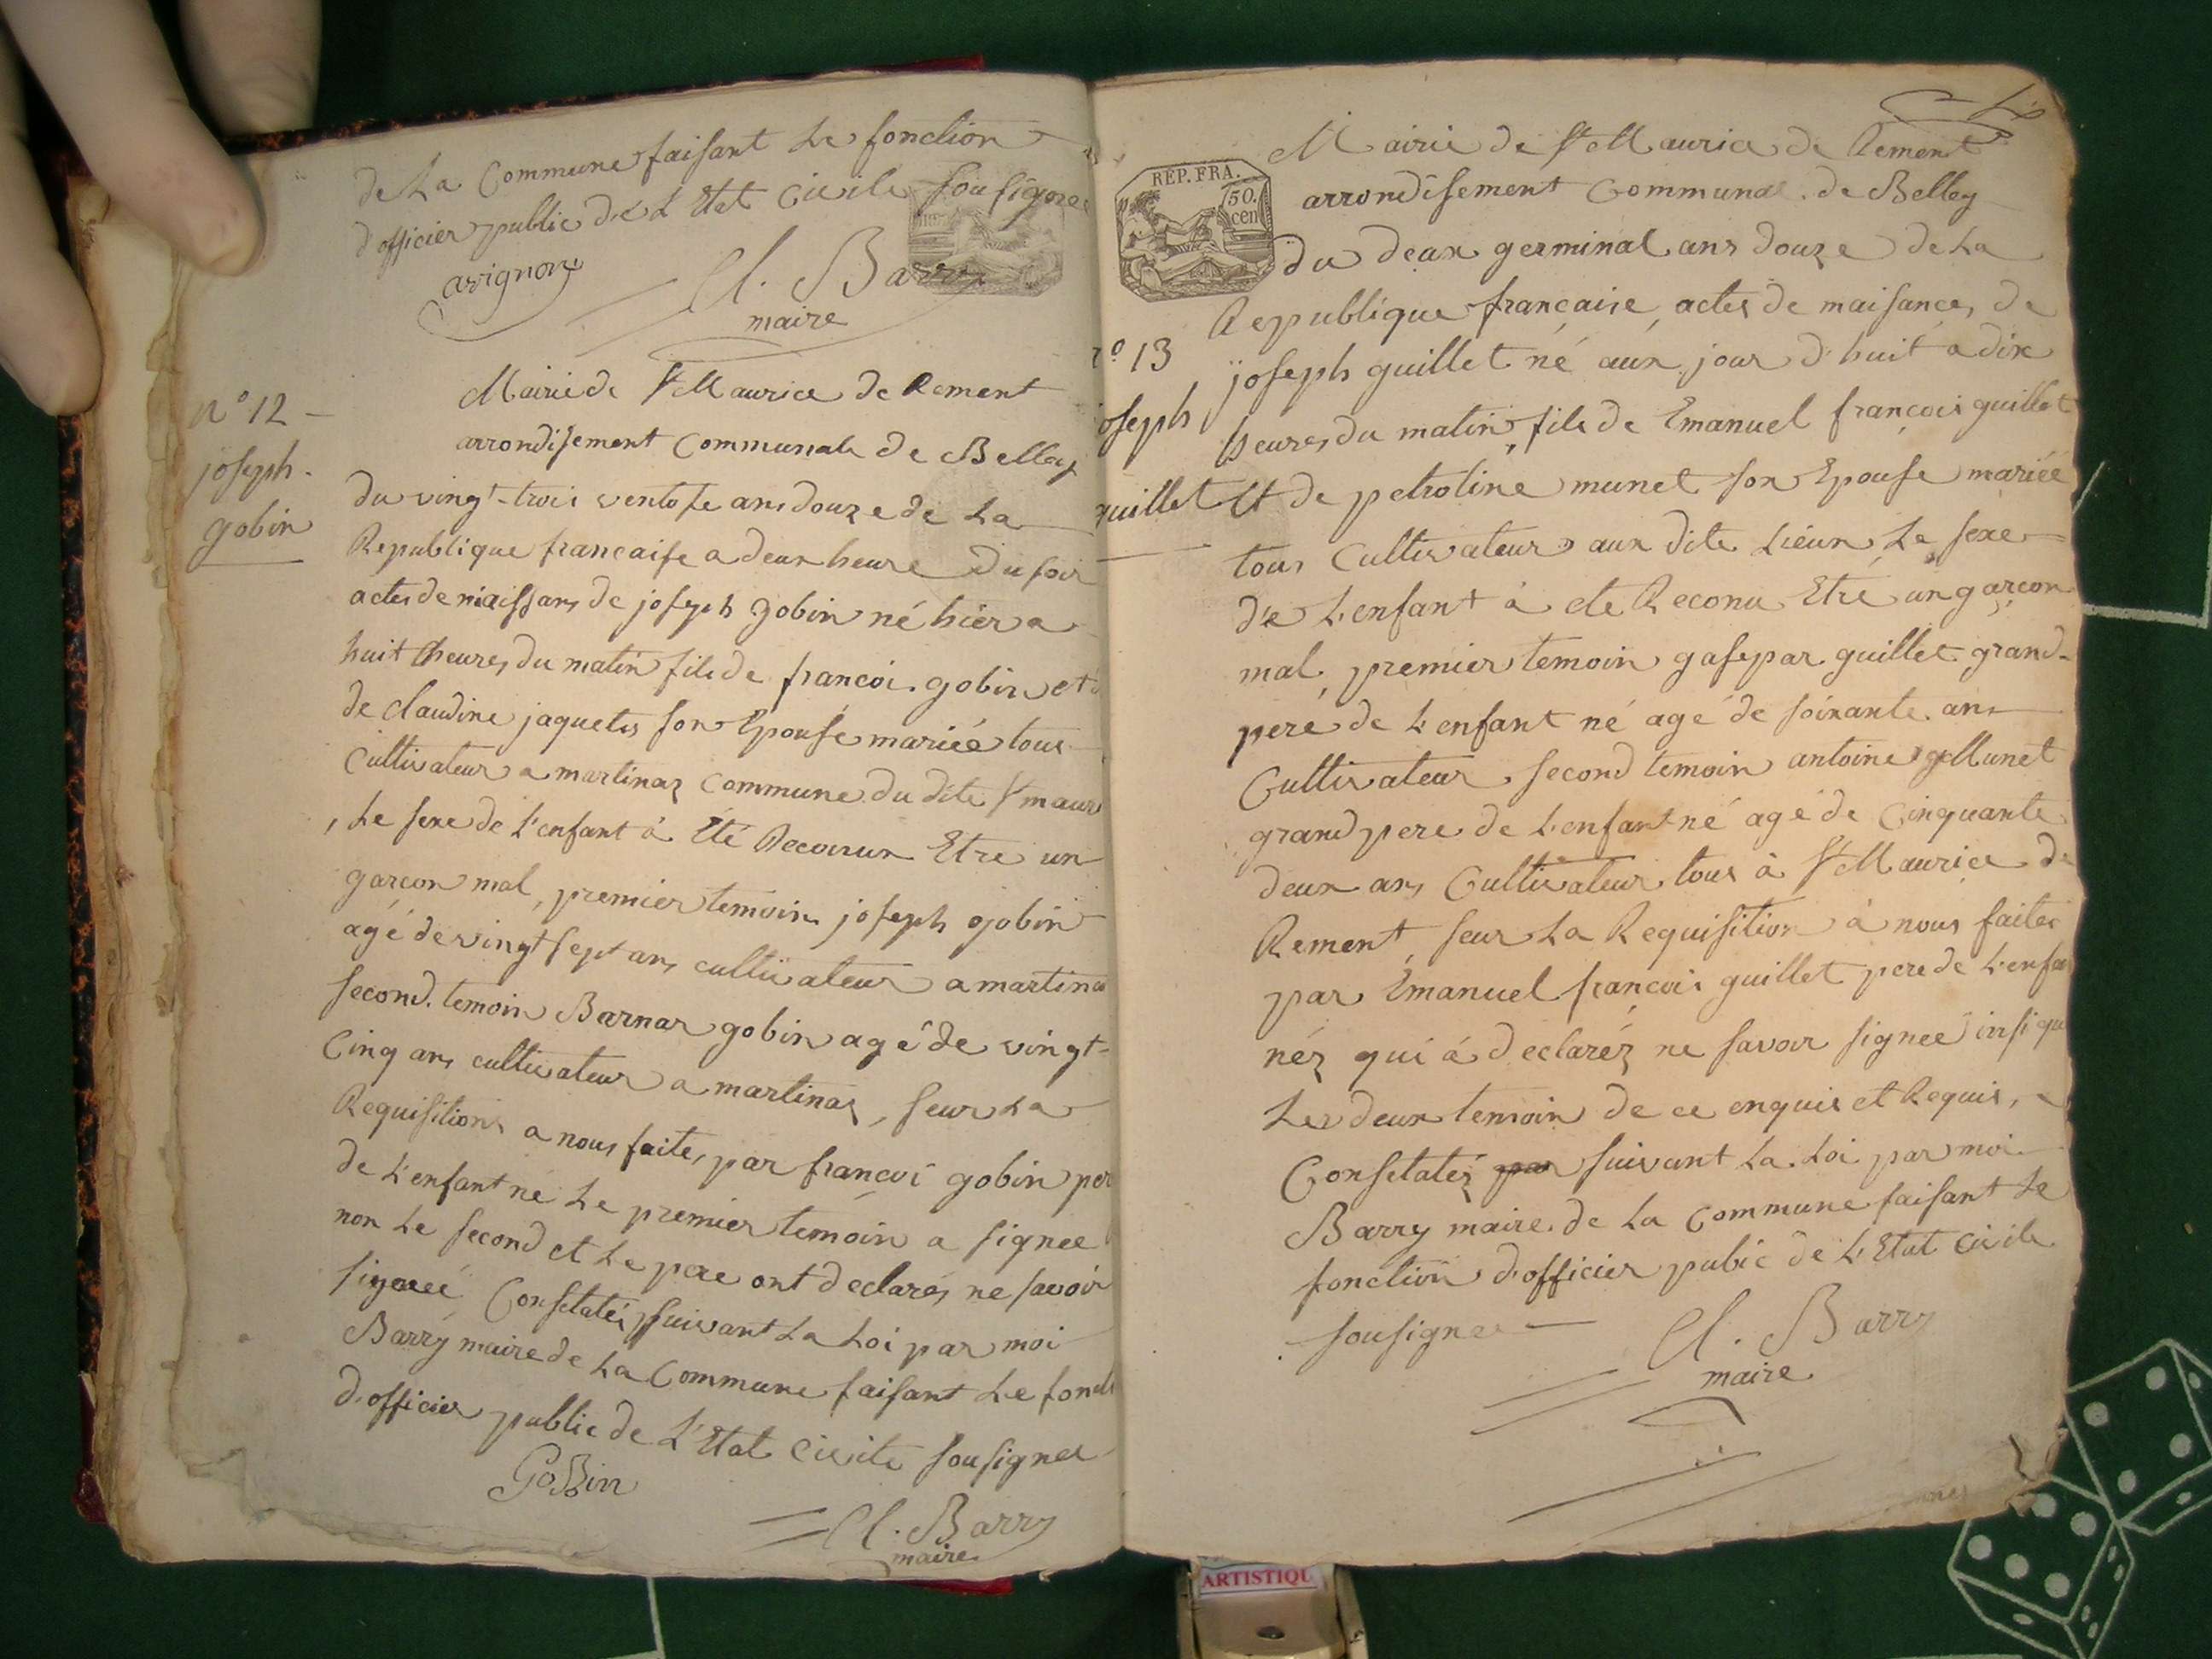 de La Commune faisant Le fonction
d'officier public de L'Etat Civile sousignee
avignon
Cl. Barry
maire
n° 12
joseph
gobin
Mairie de St Maurice de Rement
arrondisement Communale de Belley
du vingt-trois ventose ans douze de La
Republique francaise a deux heure du soir
actes de naissans de joseph gobin né hier a
huit heures du matin fils de francois gobin et
de claudine jaquetes son Epouse mariée tous
Cultivateur a martinaz Commune du dite St maur
Le sexe de L'enfant à Eté Reconnu Etre un
garçon mal, premier temoin joseph gobin
agé de vingt sept ans cultivateur a martina
second temoin Barnar gobin agé de vingt-
Cinq ans cultivateur a martinaz, seur La
Requisitions a nous faites par francoi gobin per
de L'enfant né Le premier temoin a signee
non Le second et Le pere ont declarés ne savoir
signeé Consetatéz suivant La Loi par moi
Barry maire de La Commune faisant Le foncti
d'officier public de L'Etat Civile sousignee
GoBin
Cl. Barry
maire
REP. FRA.
50.
cen
Mairie de St Maurice de Rement
arrondisement Communal de Belley
du deux germinal ans douze de La
Republique francaise, actes de naisances de
n° 13
joseph
guillet
joseph guillet né aux jour d'huit a dix
heures du matin, fils de Emanuel françois guillet
Et de petroline munet son Epouse mariée
tous Cultivateur aux dite Lieux Le sexe
de L'enfant à eté Reconu Etre un garcon
mal, premier temoin gasepar guillet grand-
pere de L'enfant né agé de soixante ans
Cultivateur second temoin antoine Munet
grand pere de L'enfant né agé de Cinquante
deux ans Cultivateur tous à St Maurice de
Rement, seur La Requisition à nous faites
par Emanuel françois guillet pere de L'enfa
néz qui á declaréz ne savoir signee insi que
Les deux temoin de ce enquis et Requis,
Consetatéz par suivant La Loi par moi
Barry maire de La Commune faisant Le
fonction d'officier pubic de L'Etat Civile
sousignee
Cl. Barry
maire
ARTISTIQU